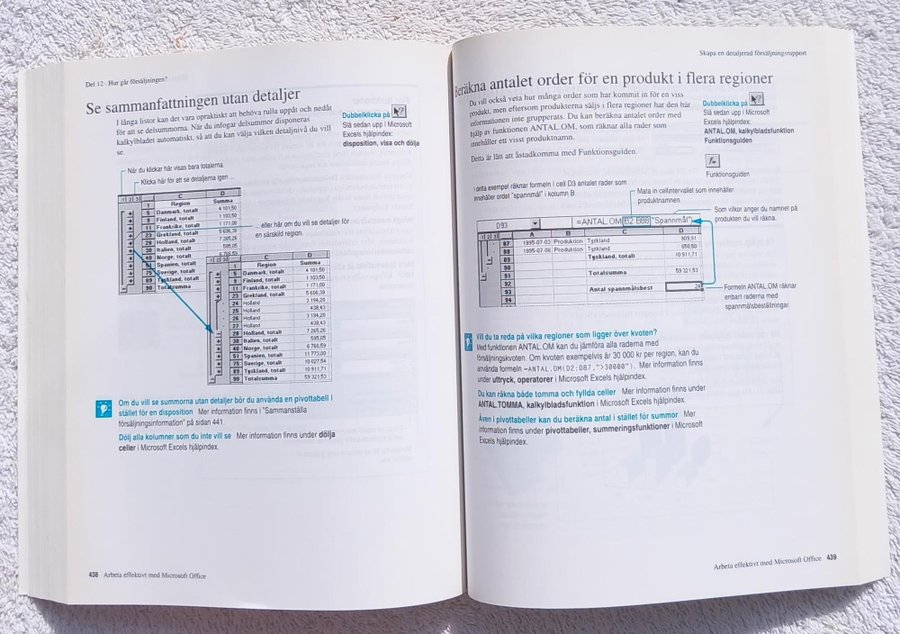 Del 12 Hur går försäljningen?
Se sammanfattningen utan detaljer
I långa listor kan det vara opraktiskt att behöva rulla uppåt och nedåt
för att se delsummorna. När du infogar delsummor disponeras
kalkylbladet automatiskt, så att du kan välja vilken detaljnivå du vill
se.
Dubbelklicka på
Slå sedan upp i Microsoft
Excels hjälpindex:
disposition, visa och dölja
När du klickar här visas bara totalerna.
Klicka här för att se detaljerna igen ...
... eller här om du vill se detaljer för
en särskild region.
D
Region Summa
5 Danmark, totalt 4 101,50
9 Finland, totalt 1 103,50
11 Frankrike, totalt 1 171,00
23 Grekland, totalt 5 606,38
28 Holland, totalt 7 265,26
30 Italien, totalt 595,05
40 Norge, totalt 6 766,59
51 Spanien, totalt
75 Sverige, totalt
89 Tyskland, totalt
90 Totalsumma
C D
1 Region Summa
5 Danmark, totalt 4 101,50
9 Finland, totalt 1 103,50
11 Frankrike, totalt 1 171,00
23 Grekland, totalt 5 606,38
24 Holland 3 194,20
25 Holland 438,43
26 Holland 3 194,20
27 Holland 438,43
28 Holland, totalt 7 265,26
30 Italien, totalt 595,05
40 Norge, totalt 6 766,59
51 Spanien, totalt 11 773,00
75 Sverige, totalt 10 027,54
89 Tyskland, totalt 10 911,71
90 Totalsumma 59 321,53
Om du vill se summorna utan detaljer bör du använda en pivottabell i
stället för en disposition Mer information finns i "Sammanställa
försäljningsinformation" på sidan 441.
Dölj alla kolumner som du inte vill se Mer information finns under dölja
celler i Microsoft Excels hjälpindex.
438 Arbeta effektivt med Microsoft Office
Skapa en detaljerad försäljningsrapport
Beräkna antalet order för en produkt i flera regioner
Du vill också veta hur många order som har kommit in för en viss
produkt, men eftersom produkterna säljs i flera regioner har den här
informationen inte grupperats. Du kan beräkna antalet order med
hjälp av funktionen ANTAL.OM, som räknar alla rader som
innehåller ett visst produktnamn.
Detta är lätt att åstadkomma med Funktionsguiden.
Dubbelklicka på
Slå sedan upp i Microsoft
Excels hjälpindex:
ANTAL.OM, kalkylbladsfunktion
Funktionsguiden
Funktionsguiden
I detta exempel räknar formeln i cell D93 antalet rader som
innehåller ordet "spannmål" i kolumn B.
Mata in cellintervallet som innehåller
produktnamnen.
Som villkor anger du namnet på
produkten du vill räkna.
D93 =ANTAL.OM(B2:B88;"Spannmål")
A B C D
87 1995-07-03 Produktion Tyskland 909,91
88 1995-07-06 Produktion Tyskland 959,50
89 Tyskland, totalt 10 911,71
90
91 Totalsumma 59 321,53
92
93 Antal spannmålsbest 24
94
Formeln ANTAL.OM räknar
enbart raderna med
spannmålsbeställningar.
Vill du ta reda på vilka regioner som ligger över kvoten?
Med funktionen ANTAL.OM kan du jämföra alla raderna med
försäljningskvoten. Om kvoten exempelvis är 30 000 kr per region, kan du
använda formeln =ANTAL.OM(D2:D87,">30000"). Mer information finns
under uttryck, operatorer i Microsoft Excels hjälpindex.
Du kan räkna både tomma och fyllda celler Mer information finns under
ANTAL.TOMMA, kalkylbladsfunktion i Microsoft Excels hjälpindex.
Även i pivottabeller kan du beräkna antal i stället för summor Mer
information finns under pivottabeller, summeringsfunktioner i Microsoft
Excels hjälpindex.
Arbeta effektivt med Microsoft Office 439